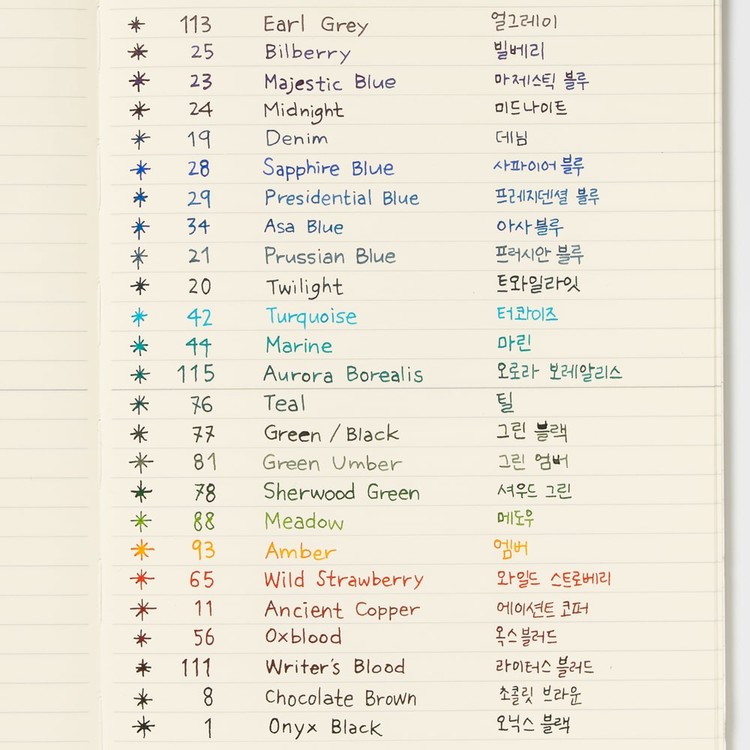 113 Earl Grey 얼그레이
25 Bilberry 빌베리
23 Majestic Blue 마제스틱 블루
24 Midnight 미드나이트
19 Denim 데님
28 Sapphire Blue 사파이어 블루
29 Presidential Blue 프레지덴셜 블루
34 Asa Blue 아사 블루
21 Prussian Blue 프러시안 블루
20 Twilight 트와일라잇
42 Turquoise 터콰이즈
44 Marine 마린
115 Aurora Borealis 오로라 보레알리스
76 Teal 틸
77 Green / Black 그린 블랙
81 Green Umber 그린 엄버
78 Sherwood Green 셔우드 그린
88 Meadow 메도우
93 Amber 엠버
65 Wild Strawberry 와일드 스트로베리
11 Ancient Copper 에이션트 코퍼
56 Oxblood 옥스블러드
111 Writer's Blood 라이터스 블러드
8 Chocolate Brown 초콜릿 브라운
1 Onyx Black 오닉스 블랙